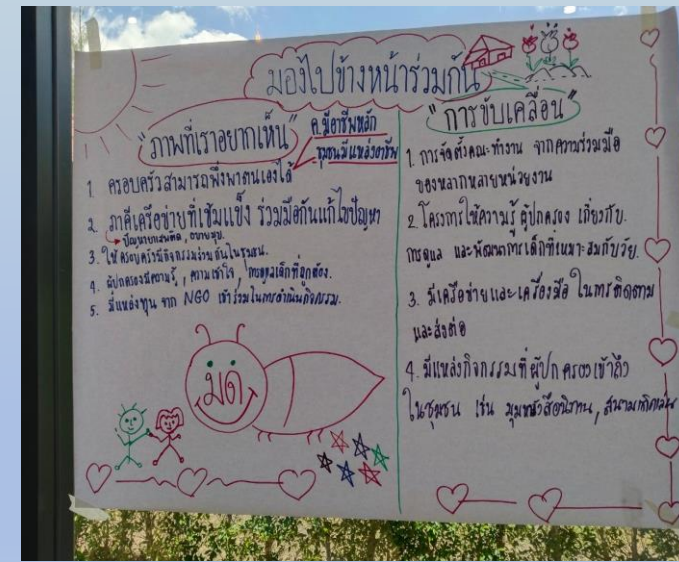 มองไปข้างหน้าร่วมกัน
"ภาพที่เราอยากเห็น"
ค.มีอาชีพหลัก
ชุมชนมีแหล่งอาชีพ
1 ครอบครัวสามารถพึ่งพาตนเองได้
2. ภาคีเครือข่ายที่เข้มแข็ง ร่วมมือกันแก้ไขปัญหา
ปัญหายาเสพติด, อบายมุข.
3. ให้ครอบครัวมีกิจกรรมร่วมกันในชุมชน.
4. ผู้ปกครองมีความรู้, ความเข้าใจ, การดูแลเด็กที่ถูกต้อง.
5. มีแหล่งทุน จาก NGO เข้าร่วมในการดำเนินกิจกรรม.
มด
"การขับเคลื่อน"
1. การจัดตั้งคณะทำงาน จากความร่วมมือ
ของหลากหลายหน่วยงาน
2. โครงการให้ความรู้ ผู้ปกครอง เกี่ยวกับ.
การดูแล และพัฒนาการเด็กที่เหมาะสมกับวัย.
3. มีเครือข่ายและเครื่องมือ ในการติดตาม
และส่งต่อ
4. มีแหล่งกิจกรรมที่ผู้ปกครองเข้าถึง
ในชุมชน เช่น มุมหนังสือนิทาน, สนามเด็กเล่น